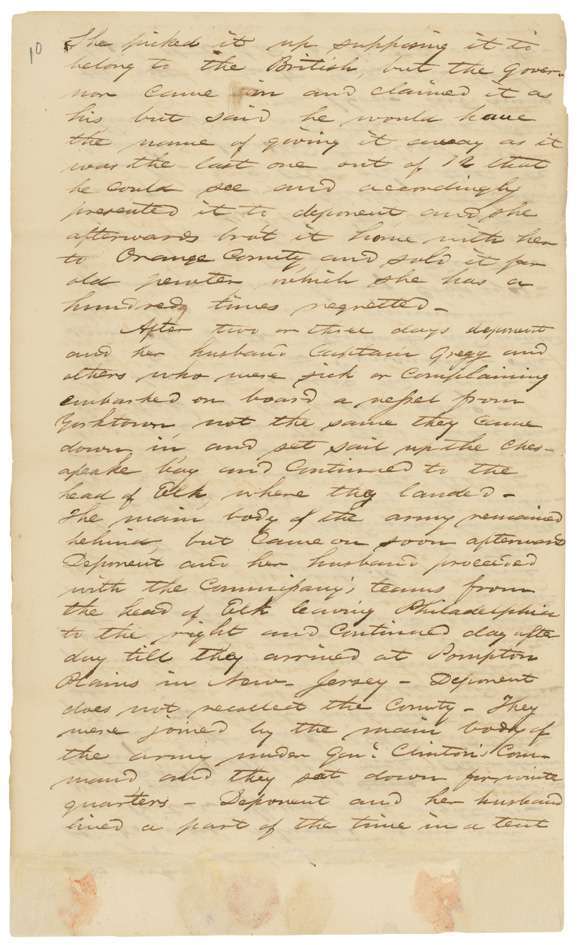 10
She picked it up supposing it to
belong to the British but the Gover-
nor came in and claimed it as
his but said he would have
the name of giving it away as it
was the last one out of 12 that
he could see and accordingly
presented it to deponent and she
afterwards brot it home with her
to Orange County and sold it for
old pewter which she has a
hundred times regretted -
After two or three days deponent
and her husband Captain Gregg and
others who were sick or complaining
embarked on board a vessel from
Yorktown, not the same they came
down in, and set sail up the Ches-
apeake bay and continued to the
head of Elk, where they landed -
The main body of the army remained
behind but came on soon afterward
Deponent and her husband proceeded
with the Commissary's teams from
the head of Elk leaving Philadelphia
to the right and continued day after
day till they arrived at Pompton
Plains in New-Jersey - Deponent
does not recollect the County - They
were joined by the main body of
the army under Genl. Clinton's Com-
mand and they set down for winte
quarters - Deponent and her husband
lived a part of the time in a tent